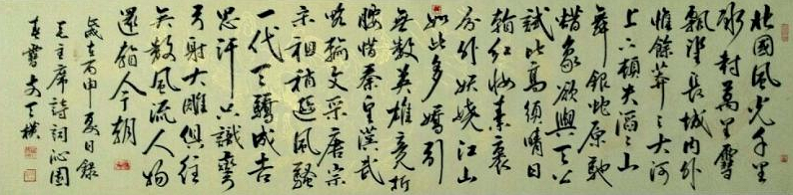 北國風光千里
冰封萬里雪
飄望長城內外
惟餘莽々大河
上下頓失滔々山
舞銀蛇原馳
蠟象欲與天公
試比高須晴日
看紅妝素裹
分外妖嬈江山
如此多嬌引
無數英雄競折
腰惜秦皇漢武
略輸文采唐宗
宋祖稍遜風騷
一代天驕成吉
思汗只識彎
弓射大雕俱往
矣數風流人物
還看今朝
歲在丙申夏日錄
毛主席詩詞沁園
春雪